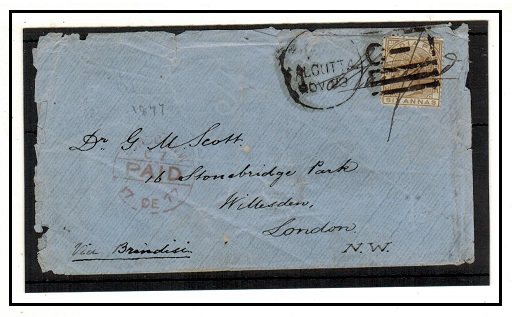 CALCUTTA
NOV 23
C 1
SIX ANNAS
1877
Dr G M Scott.
PAID
17 DE 77
16 Stonebridge Park
Willesden,
London.
N.W.
Via Brindisi